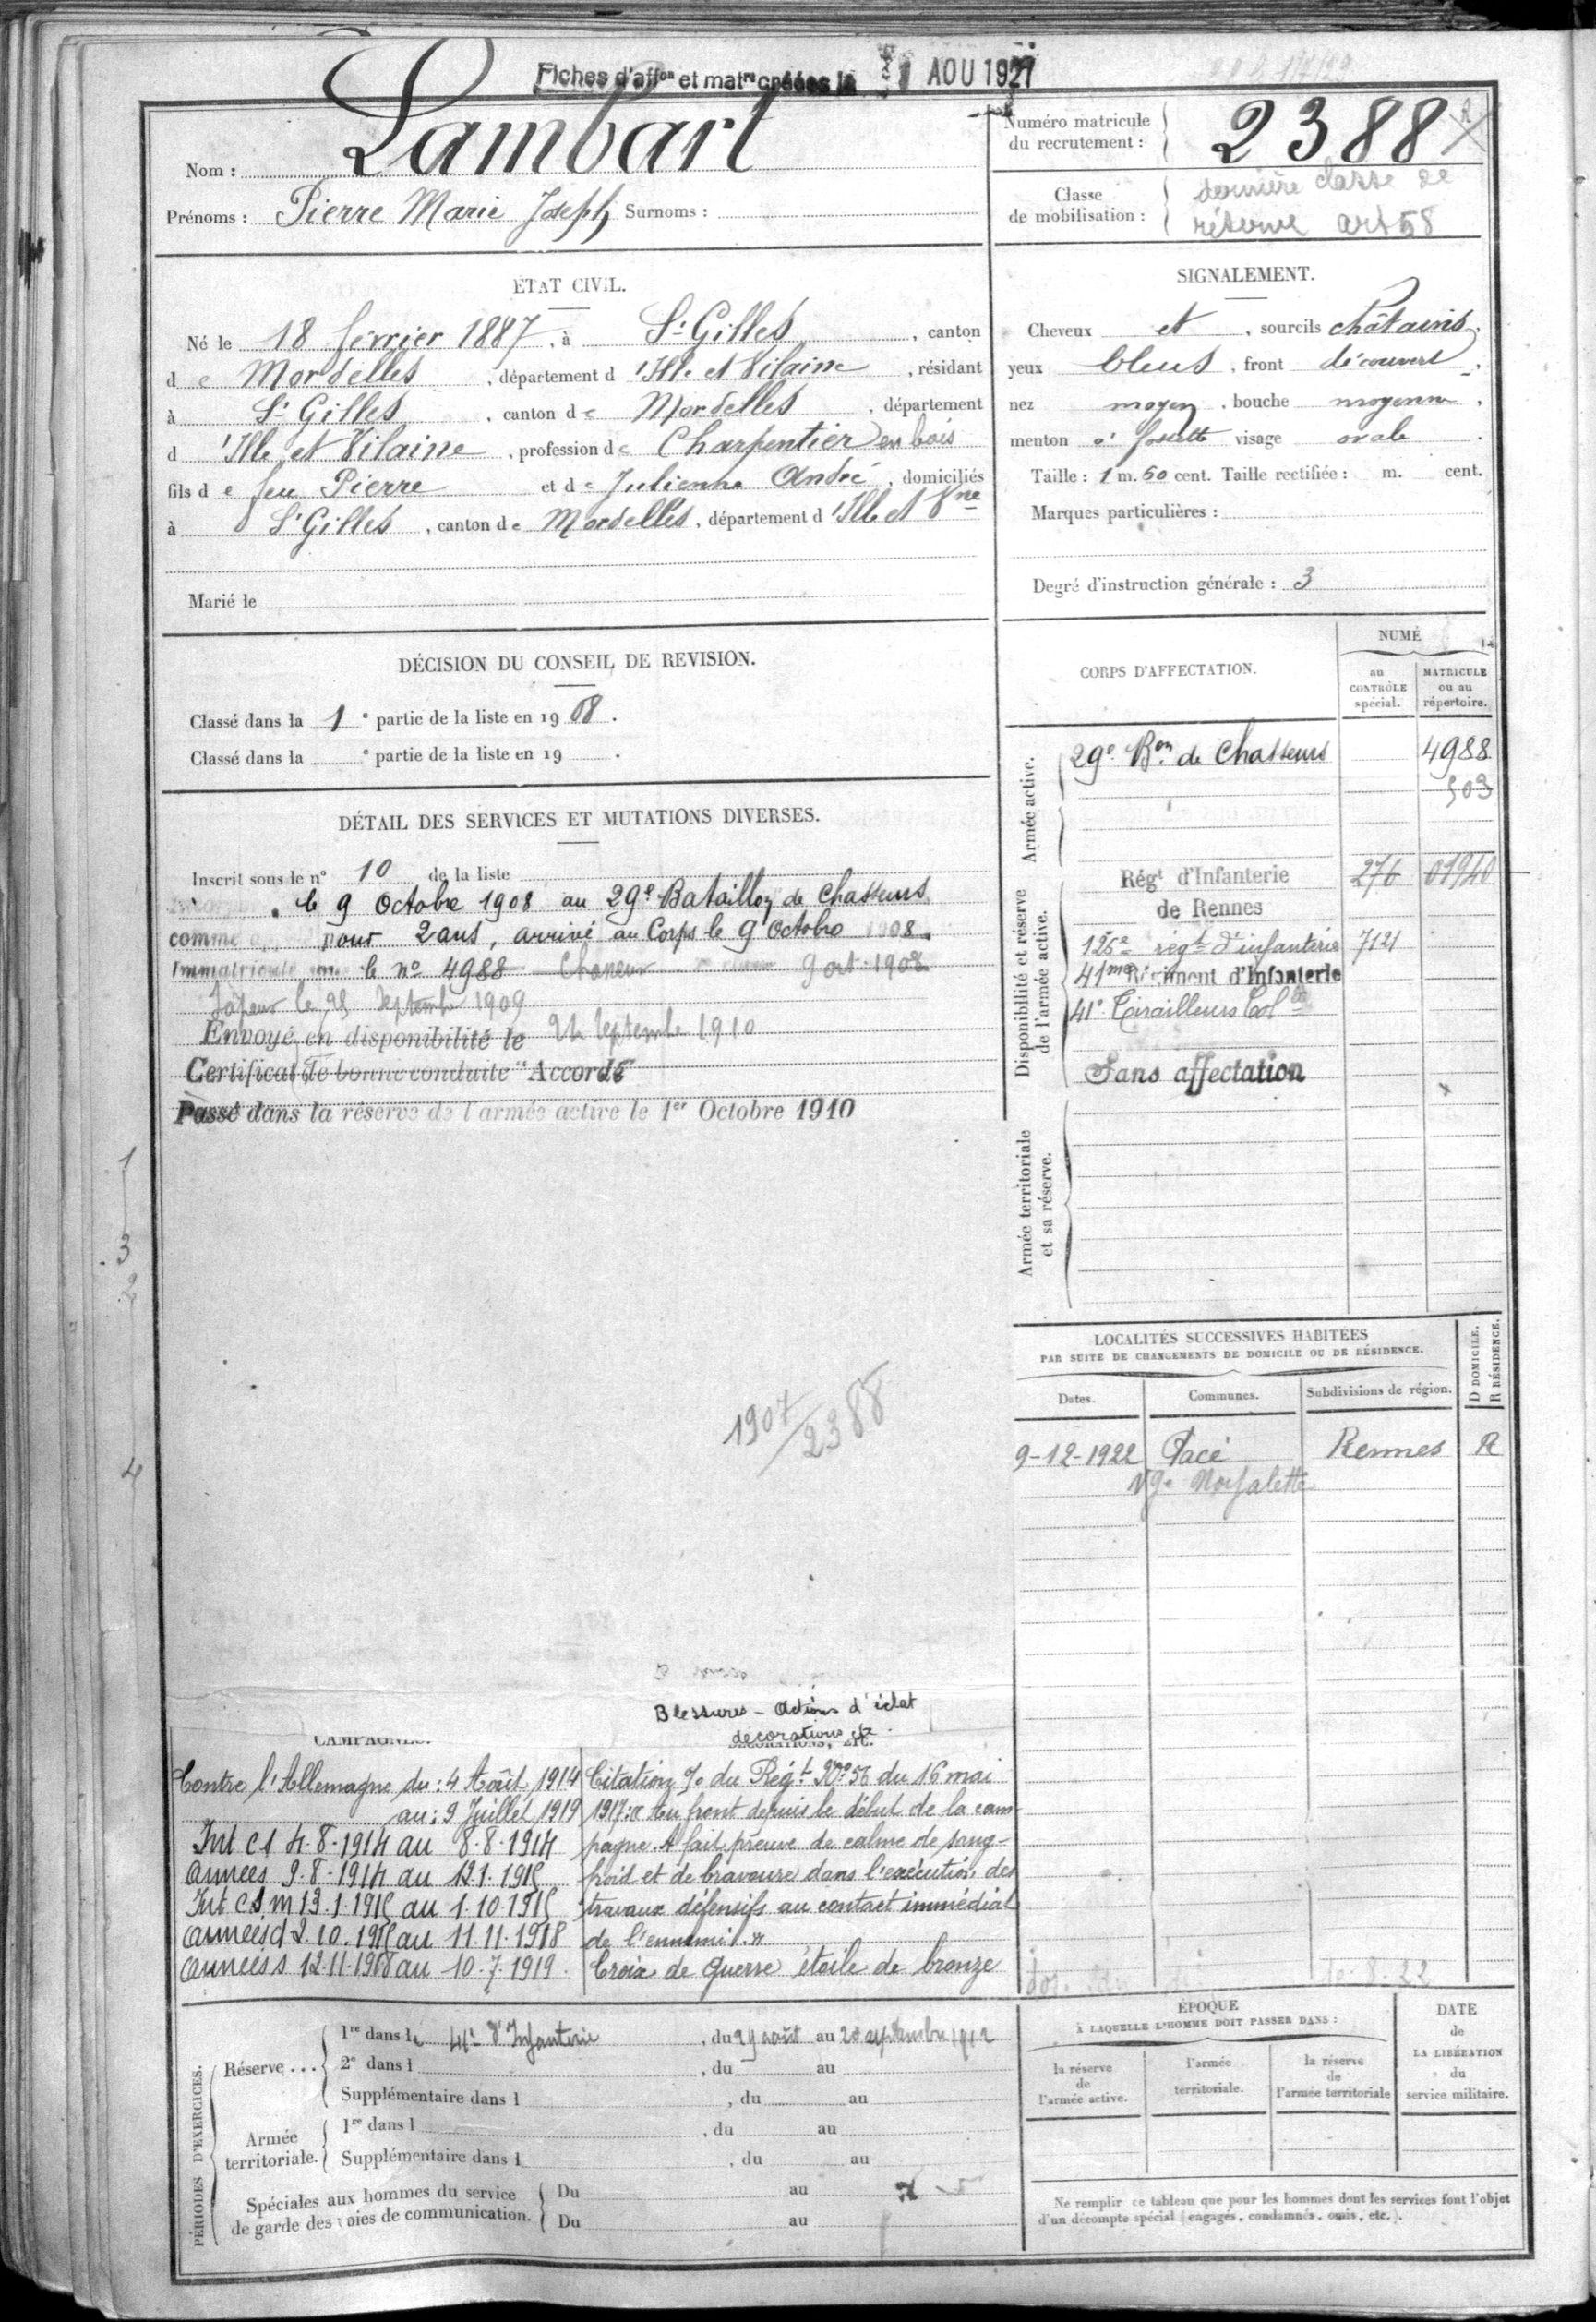 Fiches d'affon et matre créées le AOU 1927
Nom : Lambart
Prénoms : Pierre Marie Joseph Surnoms :
Numéro matricule du recrutement : 2388
Classe de mobilisation : dernière classe de réserve art 58
ÉTAT CIVIL.
Né le 18 février 1887, à St Gilles, canton
de Mordelles, département d'Ille et Vilaine, résidant
à St Gilles, canton de Mordelles, département
d'Ille et Vilaine, profession de Charpentier en bois
fils de feu Pierre et de Julienne André, domiciliés
à St Gilles, canton de Mordelles, département d'Ille et Vne
Marié le
SIGNALEMENT.
Cheveux et, sourcils châtains,
yeux bleus, front découvert,
nez moyen, bouche moyenne,
menton à fossette visage ovale.
Taille : 1 m. 60 cent. Taille rectifiée : m. cent.
Marques particulières :
Degré d'instruction générale : 3
DÉCISION DU CONSEIL DE REVISION.
Classé dans la 1e partie de la liste en 1908.
Classé dans la e partie de la liste en 19 .
DÉTAIL DES SERVICES ET MUTATIONS DIVERSES.
Inscrit sous le n° 10 de la liste
le 9 Octobre 1908 au 29e Bataillon de Chasseurs
comme pour 2 ans, arrivé au Corps le 9 Octobre 1908.
Immatriculé le n° 4988 9 oct 1908
le 25 Septembre 1909
Envoyé en disponibilité le 24 Septembre 1910
Certificat de bonne conduite "Accordé"
Passé dans la réserve de l'armée active le 1er Octobre 1910
1
3
2
4
1907/2388
CORPS D'AFFECTATION.
NUMÉ
au CONTRÔLE spécial.
MATRICULE ou au répertoire.
Armée active.
29e Bon de Chasseurs 4988
503
Disponibilité et réserve de l'armée active.
Régt d'Infanterie 276 01940
de Rennes
125e régt d'infanterie 7121
41me Régiment d'Infanterie
41e Tirailleurs Col
Sans affectation
Armée territoriale et sa réserve.
LOCALITÉS SUCCESSIVES HABITÉES
PAR SUITE DE CHANGEMENTS DE DOMICILE OU DE RÉSIDENCE.
D DOMICILE. R RÉSIDENCE.
Dates. Communes. Subdivisions de région.
9-12-1922 Pacé Rennes R
CAMPAGNES.
Contre l'Allemagne du : 4 Août 1914
au : 9 Juillet 1919
Int CS 4-8-1914 au 8-8-1914
armées 9-8-1914 au 12-1-1915
Int CSM 13-1-1915 au 1-10-1915
armées d 2.10.1915 au 11-11-1918
armées s 12-11-1918 au 10-7-1919
Blessures - Actions d'éclat
décorations etc.
Citation % du Régt N° 56 du 16 mai
1917 : « Au front depuis le début de la cam
pagne. A fait preuve de calme de sang-
froid et de bravoure dans l'exécution des
travaux défensifs au contact immédiat
de l'ennemi. »
Croix de guerre étoile de bronze
PÉRIODES D'EXERCICES.
Réserve ...
1re dans le 41e d'Infanterie, du 29 août au 20 septembre 1912
2e dans l , du au
Supplémentaire dans l , du au
Armée territoriale.
1re dans l , du au
Supplémentaire dans l , du au
Spéciales aux hommes du service de garde des voies de communication.
Du au
Du au
ÉPOQUE
À LAQUELLE L'HOMME DOIT PASSER DANS :
la réserve de l'armée active.
l'armée territoriale.
la réserve de l'armée territoriale
DATE de LA LIBÉRATION du service militaire.
Ne remplir ce tableau que pour les hommes dont les services font l'objet
d'un décompte spécial (engagés, condamnés, omis, etc.).